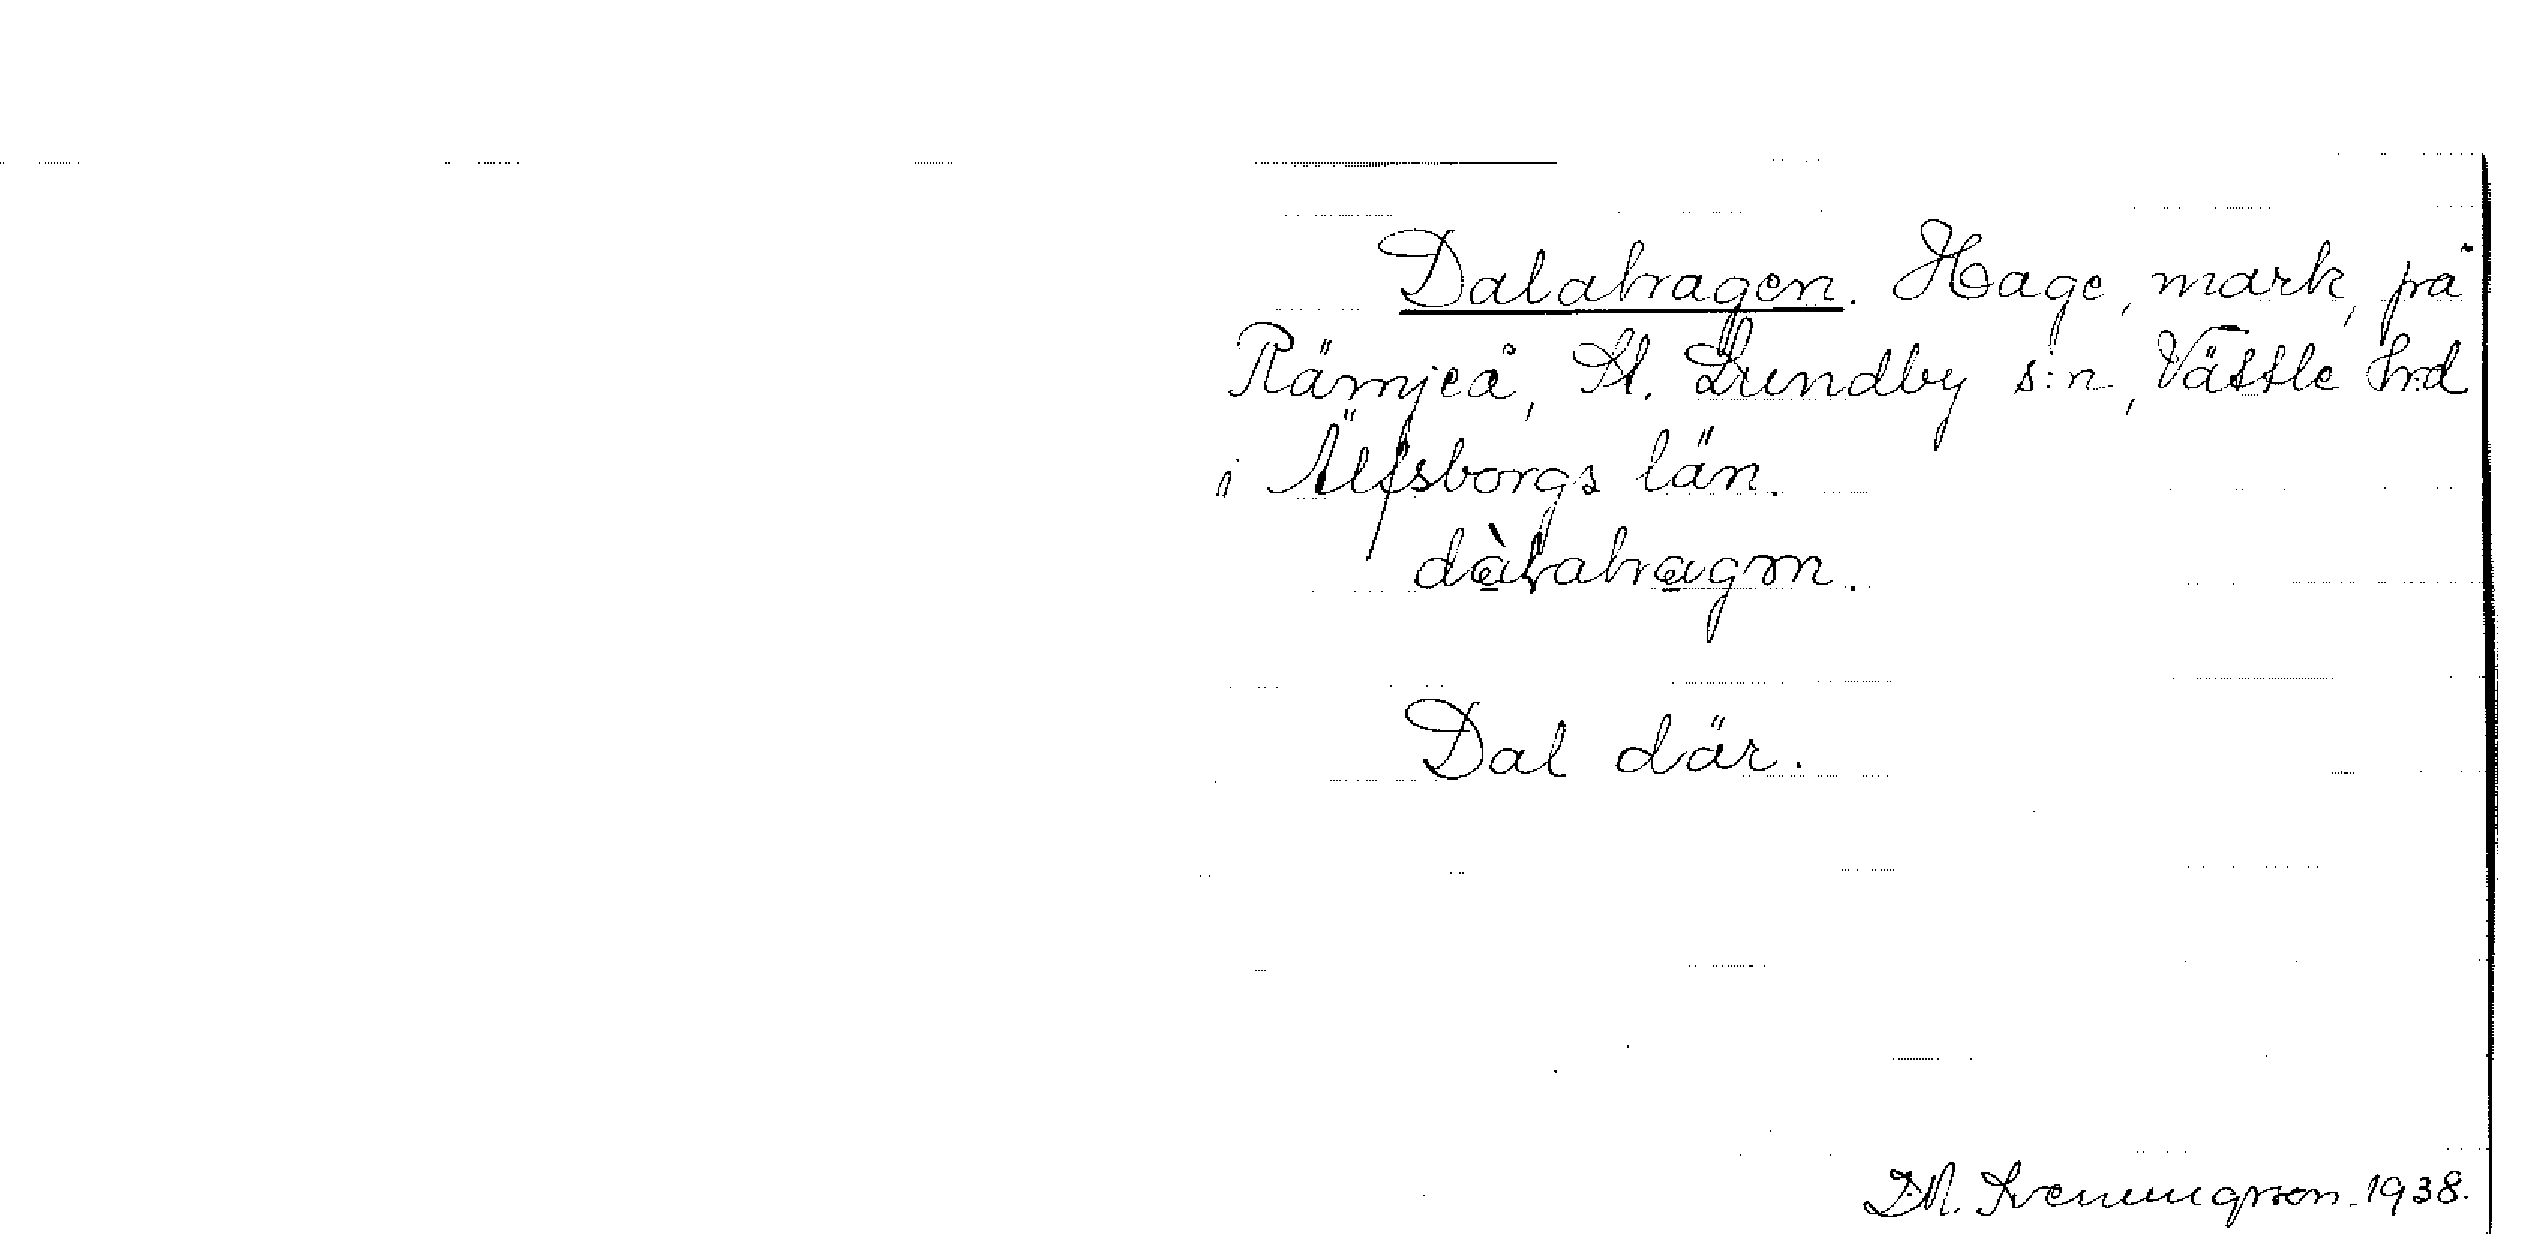 Dalahagen. Hage, mark, på
Rämjeå, St. Lundby s:n, Vättle hrd
i Älfsborgs län.
dàlahagın.
Dal där.
D.A. Sveningsson. 1938.